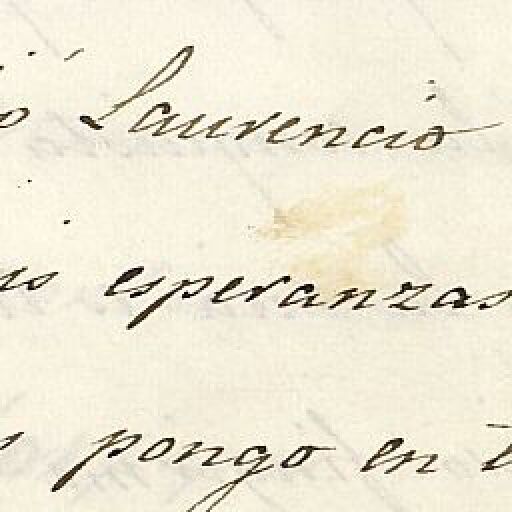 Laurencio
esperanzas
pongo en